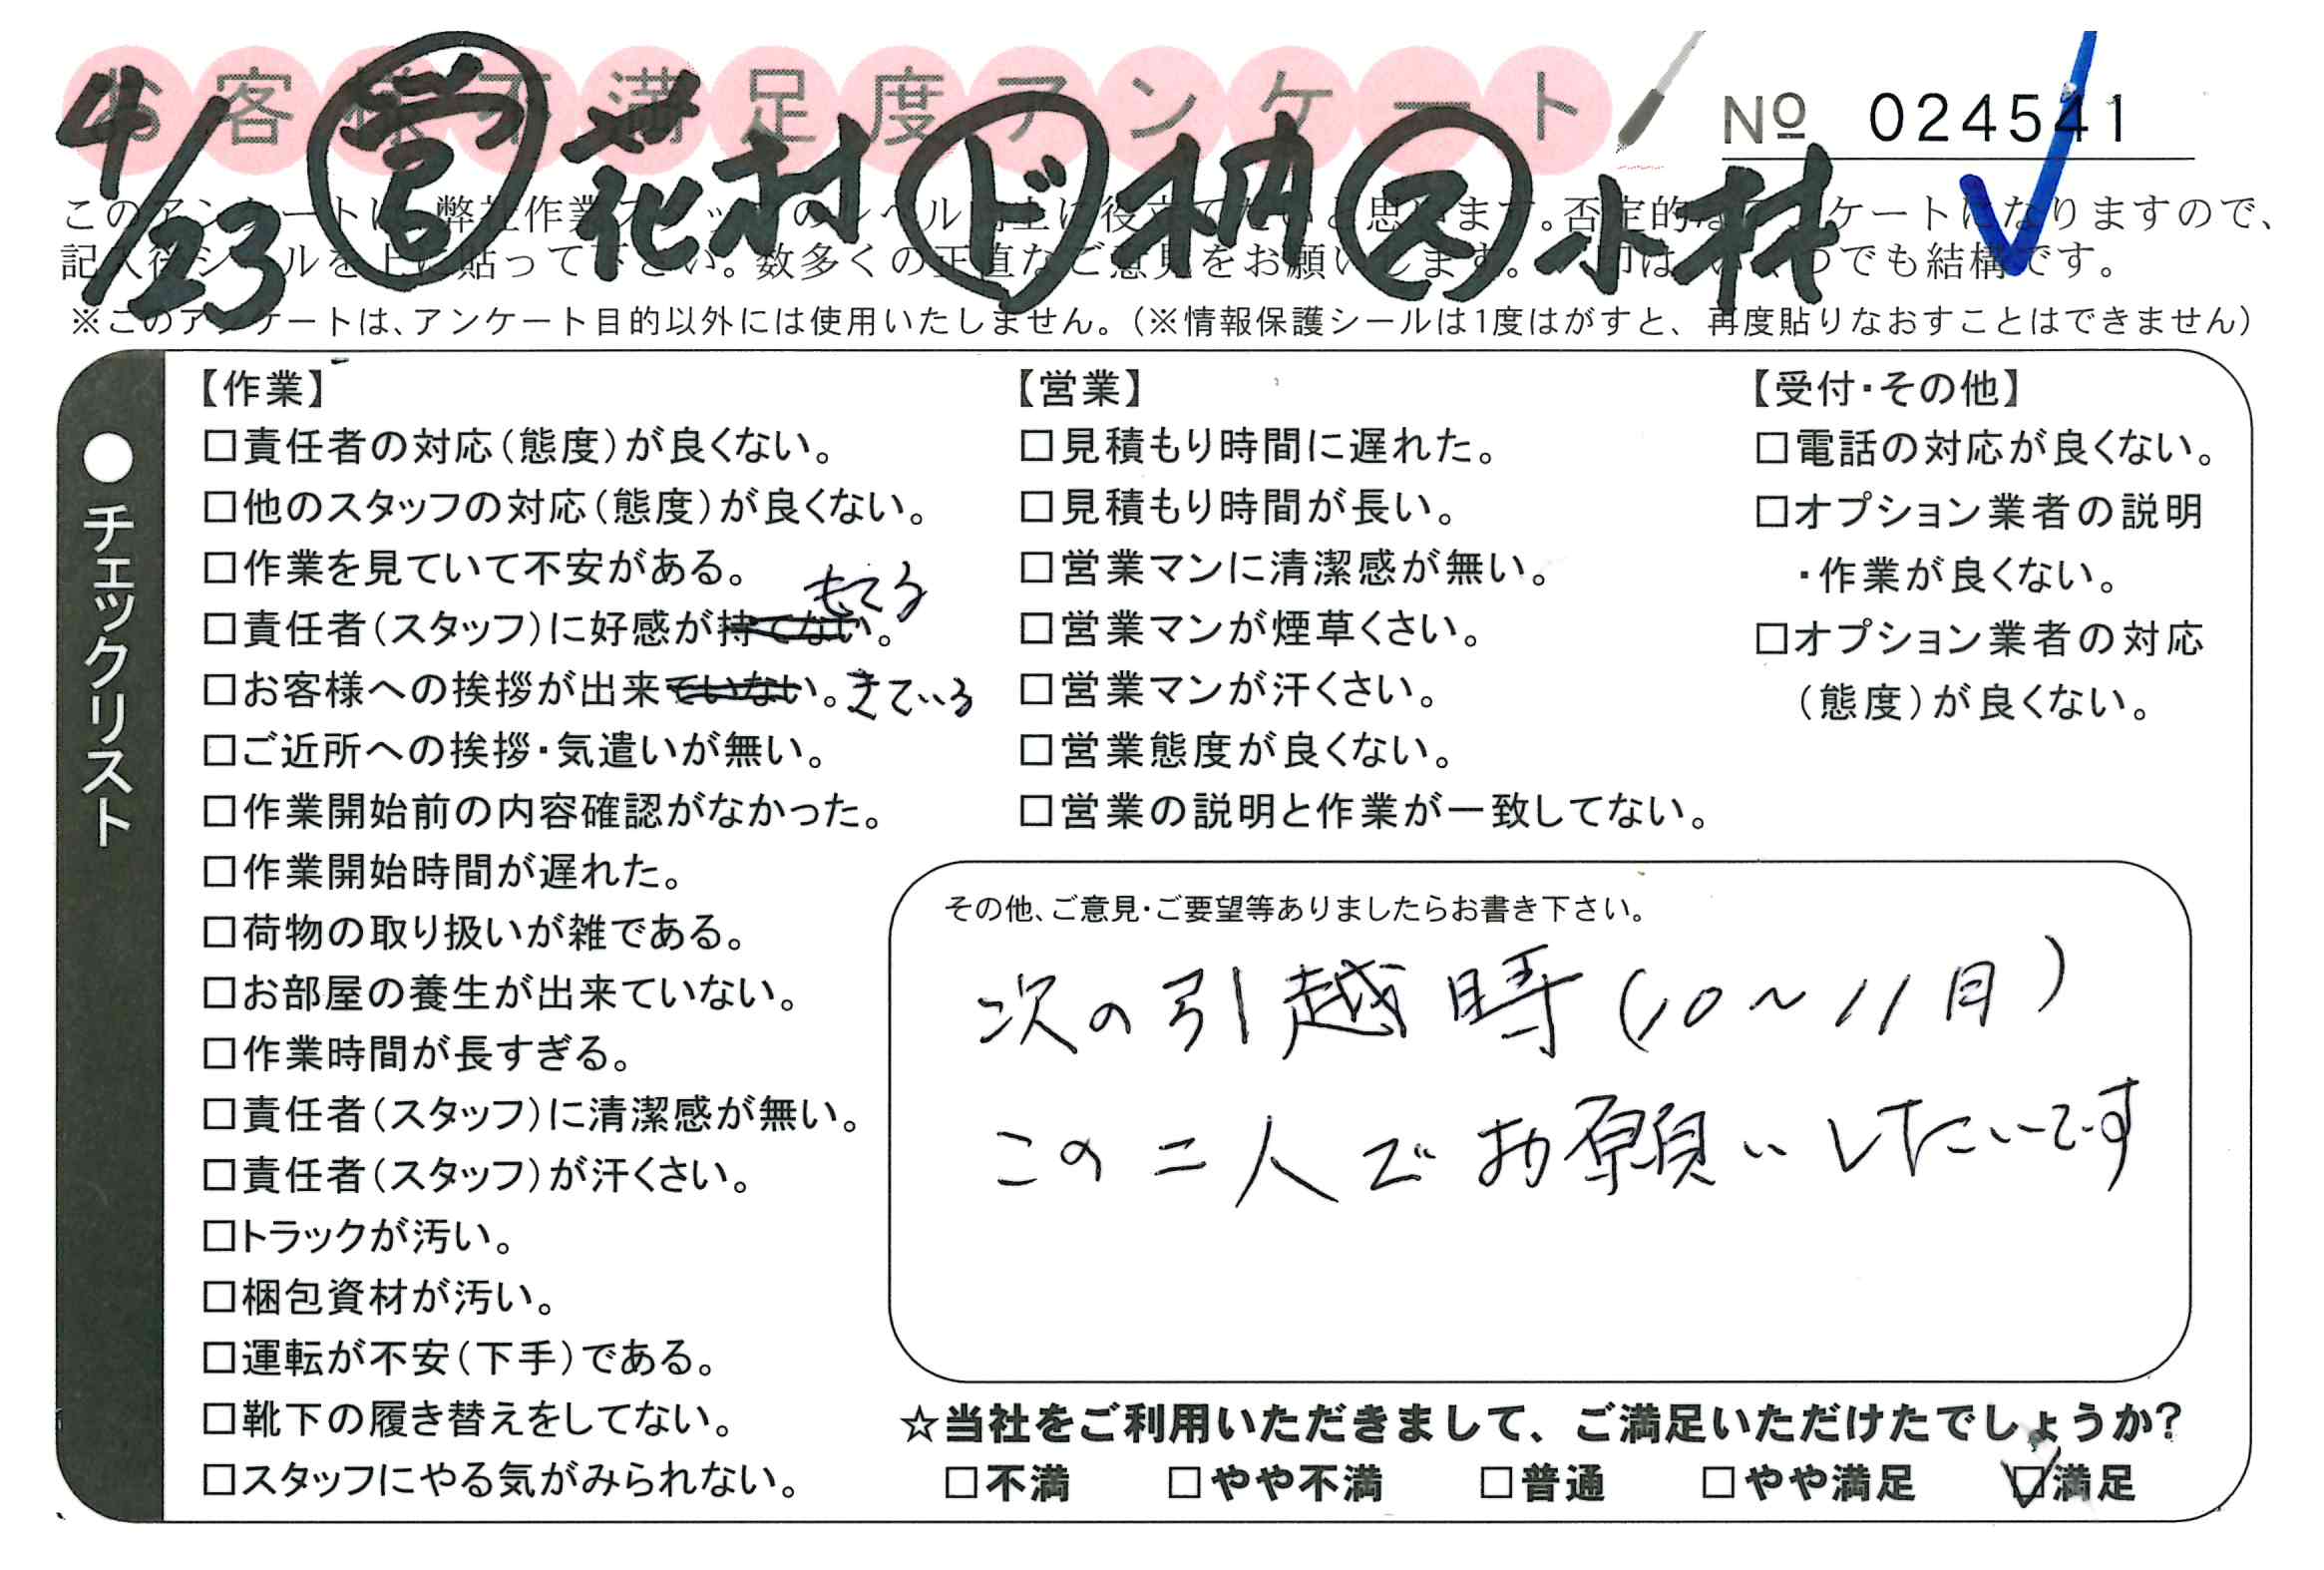 お客様不満足度アンケート
№ 024541
4/23 営 花村 ド 柄 ス 小林
このアンケートは、弊社作業スタッフのレベル向上に役立てたいと思います。否定的なアンケートになりますので、
記入後シールを上に貼って下さい。数多くの正直なご意見をお願いします。 はいくつでも結構です。
※このアンケートは、アンケート目的以外には使用いたしません。(※情報保護シールは1度はがすと、再度貼りなおすことはできません)
●チェックリスト
【作業】
□責任者の対応(態度)が良くない。
□他のスタッフの対応(態度)が良くない。
□作業を見ていて不安がある。
もてる
□責任者(スタッフ)に好感が持てない。
□お客様への挨拶が出来ていない。きている
□ご近所への挨拶・気遣いが無い。
□作業開始前の内容確認がなかった。
□作業開始時間が遅れた。
□荷物の取り扱いが雑である。
□お部屋の養生が出来ていない。
□作業時間が長すぎる。
□責任者(スタッフ)に清潔感が無い。
□責任者(スタッフ)が汗くさい。
□トラックが汚い。
□梱包資材が汚い。
□運転が不安(下手)である。
□靴下の履き替えをしてない。
□スタッフにやる気がみられない。
【営業】
□見積もり時間に遅れた。
□見積もり時間が長い。
□営業マンに清潔感が無い。
□営業マンが煙草くさい。
□営業マンが汗くさい。
□営業態度が良くない。
□営業の説明と作業が一致してない。
【受付・その他】
□電話の対応が良くない。
□オプション業者の説明
・作業が良くない。
□オプション業者の対応
(態度)が良くない。
その他、ご意見・ご要望等ありましたらお書き下さい。
次の引越時(10～11月)
この二人でお願いしたいです
☆当社をご利用いただきまして、ご満足いただけたでしょうか?
□不満 □やや不満 □普通 □やや満足 ☑満足